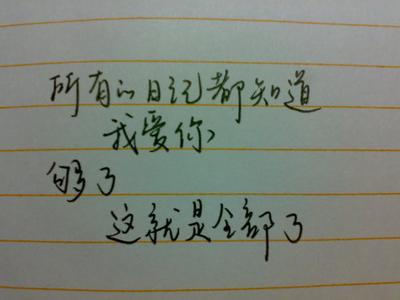 所有的日记都知道
我爱你
够了
这就是全部了